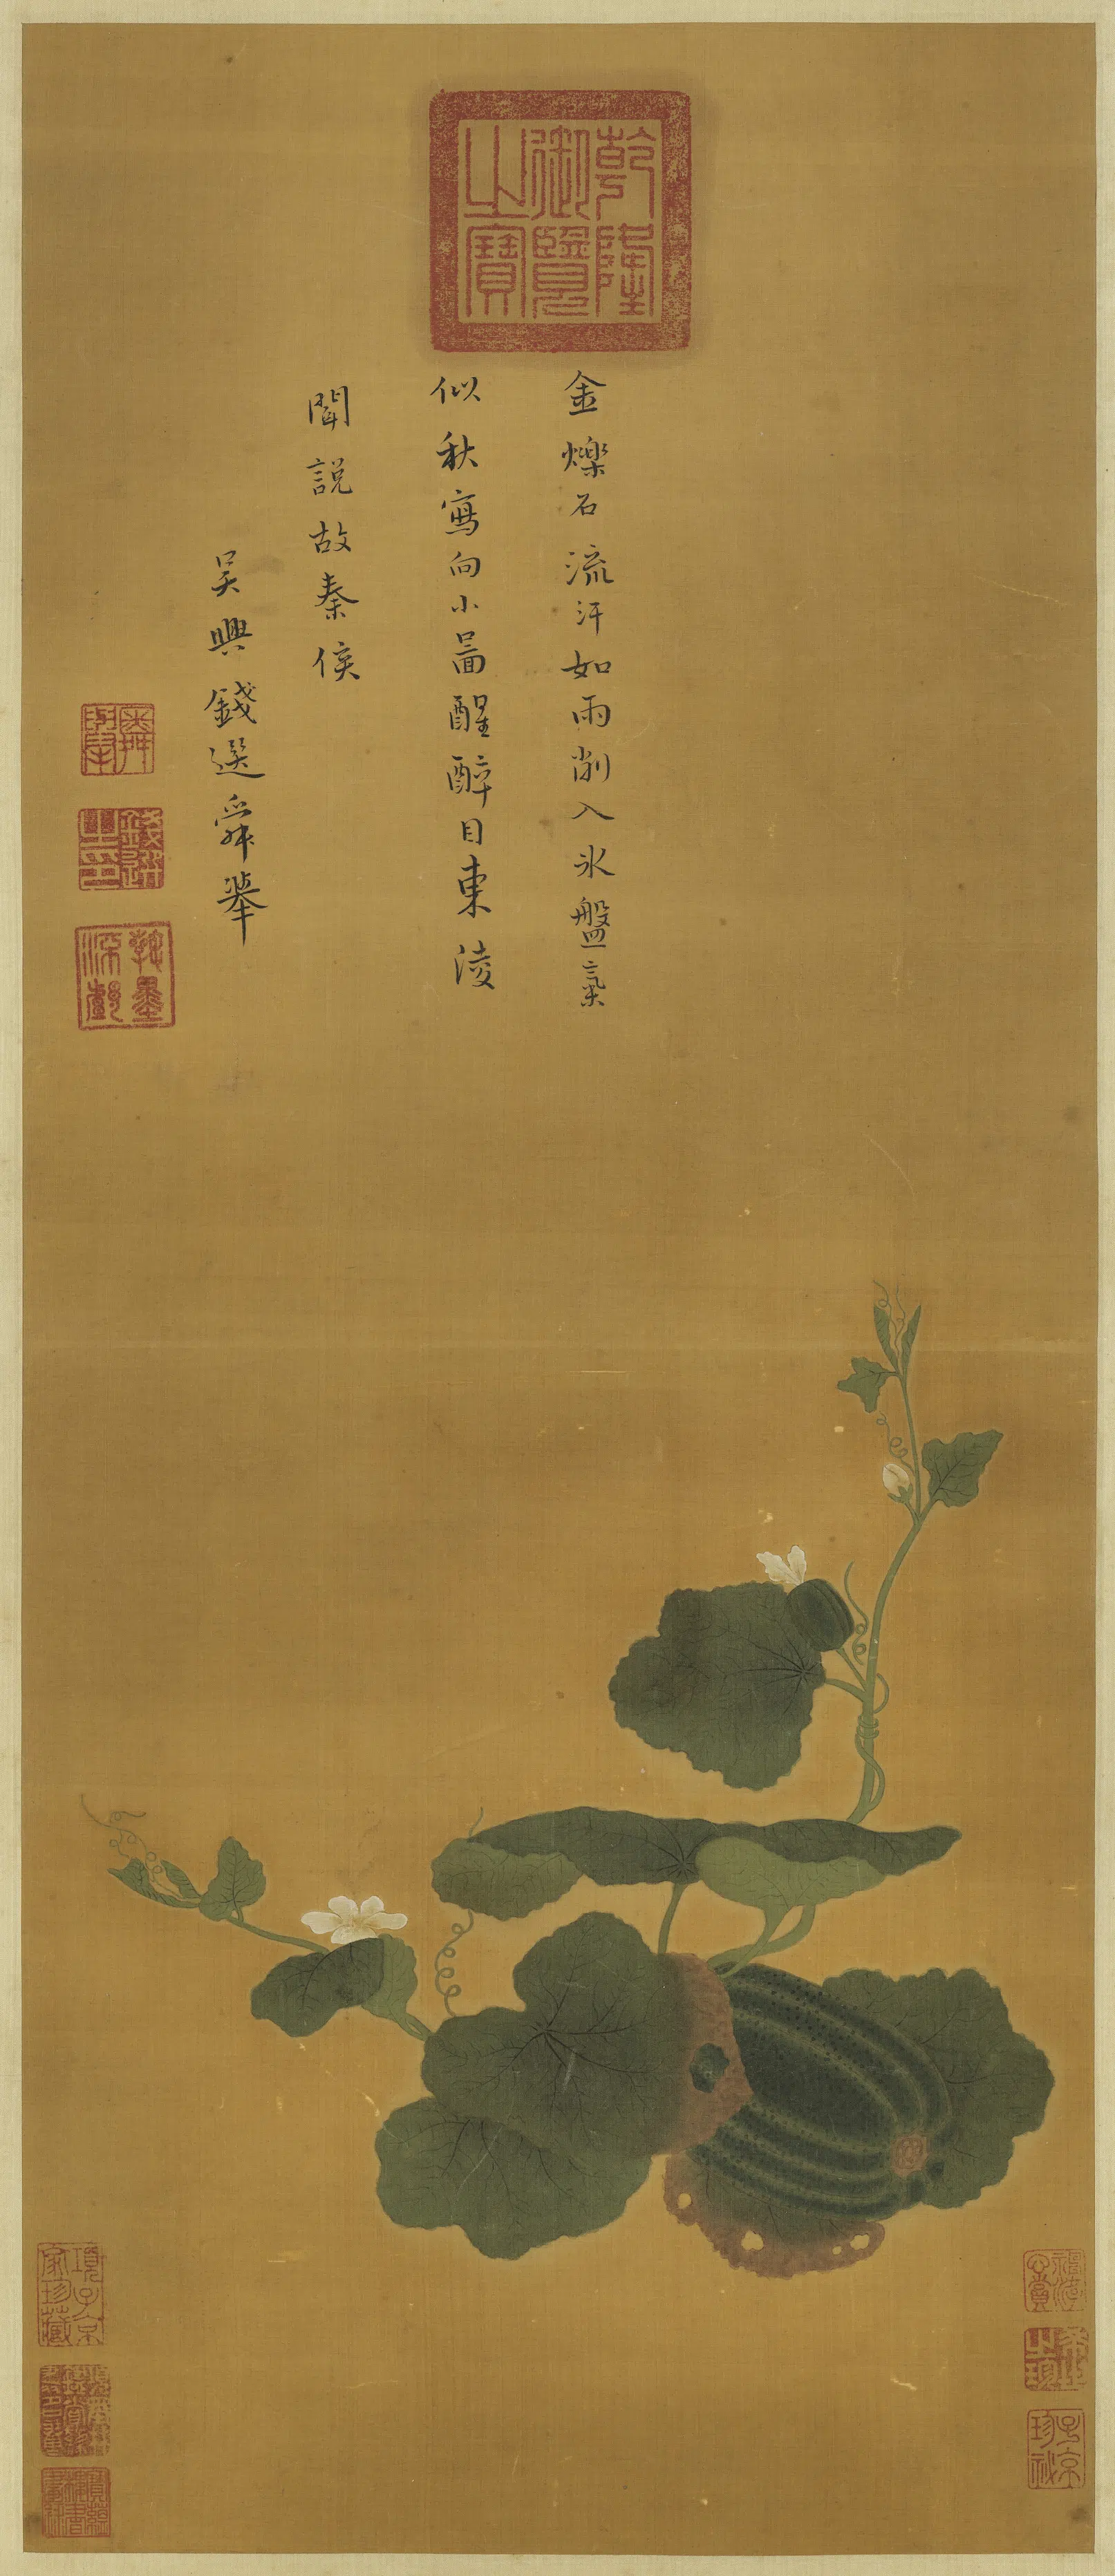 乾隆
御覽
之寶
金爍石流汗如雨削入氷盤氣
似秋寫向小啚醒醉目東淩
聞說故秦侯
吳興錢選舜舉
舜舉
錢選之印
翰墨深趣
項子京家珍藏
子京珍祕